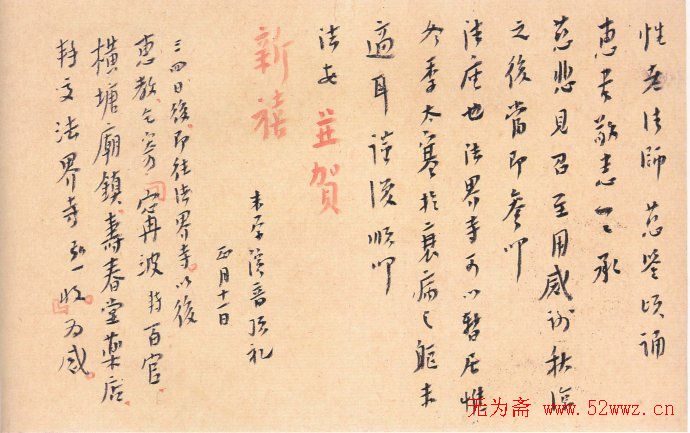 性老法師慈鑒頃誦
惠書敬悉一一承
慈悲見召至用感謝秋涼
之後當即參叩
法座也法界寺可以暫居惟
冬季太寒於衰病之軀未
適耳謹復順叩
法安 並賀
新禧
末學演音頂礼
正月十一日
三四日後即往法界寺以後
惠教乞寄寧波轉百官
橫塘廟鎮壽春堂藥店
轉交法界寺弘一收為感
尤为斋 www.52wwz.cn